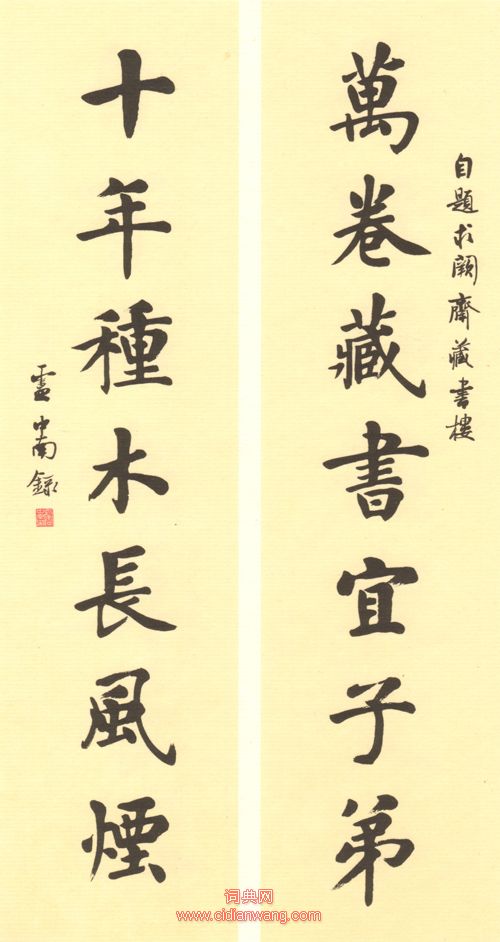 自題求闕齋藏書樓
萬卷藏書宜子弟
十年種木長風煙
盧中南錄
词典网
www.cidianwang.com